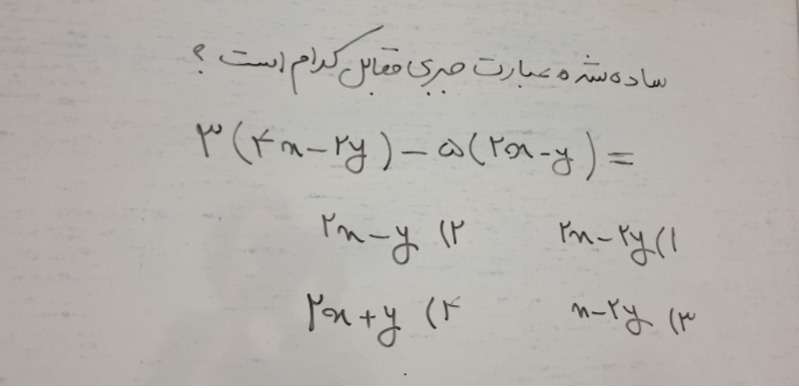 ساده شده عبارت جبری مقابل کدام است ؟
۳(۴x-۲y)-۵(۲x-y)=
۲x-۲y(۱ ۲x-y (۲
x-۲y (۳ ۲x+y (۴